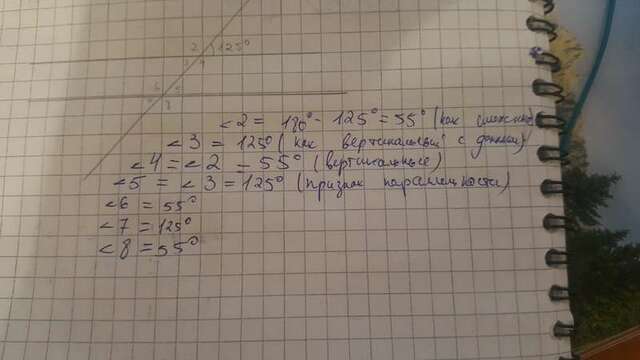 2 125°
4
6
5
8
<2 = 180° - 125° = 55° (как смежные)
<3 = 125° (как вертикальный с данным)
<4 = <2 = 55° (вертикальные)
<5 = <3 = 125° (признак параллельности)
<6 = 55°
<7 = 125°
<8 = 55°